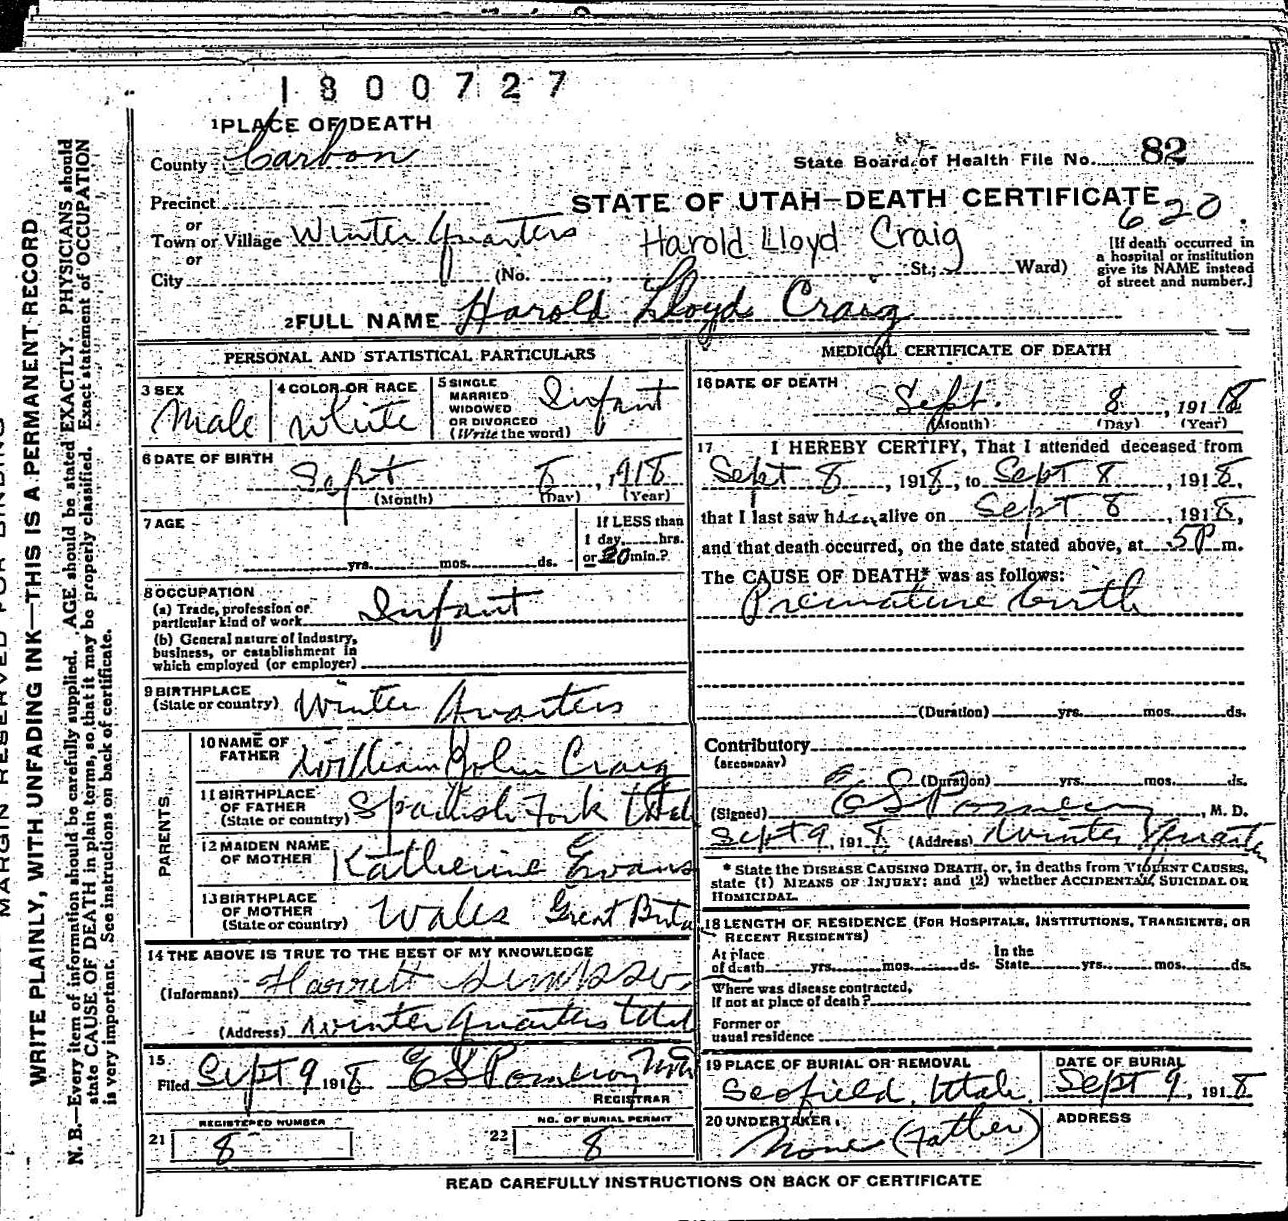 1800727
1 PLACE OF DEATH
County Carbon
State Board of Health File No. 82
Precinct
STATE OF UTAH—DEATH CERTIFICATE
620
or
Town or Village Winter Quarters
Harold Lloyd Craig
or
City (No. St.; Ward)
[If death occurred in
a hospital or institution
give its NAME instead
of street and number.]
2 FULL NAME Harold Lloyd Craig
PERSONAL AND STATISTICAL PARTICULARS
3 SEX
Male
4 COLOR OR RACE
White
5 SINGLE
MARRIED
WIDOWED
OR DIVORCED
(Write the word)
Infant
6 DATE OF BIRTH
Sept 8, 1918
(Month) (Day) (Year)
7 AGE
yrs. mos. ds.
If LESS than
1 day, hrs.
or 20 min.?
8 OCCUPATION
(a) Trade, profession or
particular kind of work Infant
(b) General nature of industry,
business, or establishment in
which employed (or employer)
9 BIRTHPLACE
(State or country) Winter Quarters
PARENTS
10 NAME OF
FATHER William John Craig
11 BIRTHPLACE
OF FATHER
(State or country) Spanish Fork Utah
12 MAIDEN NAME
OF MOTHER Katherine Evans
13 BIRTHPLACE
OF MOTHER
(State or country) Wales Great Brita
14 THE ABOVE IS TRUE TO THE BEST OF MY KNOWLEDGE
(Informant) Harriett
(Address) Winter Quarters Utah
15
Filed Sept 9 1918 E S Pomeroy
REGISTRAR
REGISTERED NUMBER
21 8
NO. OF BURIAL PERMIT
22 8
MEDICAL CERTIFICATE OF DEATH
16 DATE OF DEATH
Sept. 8, 1918
(Month) (Day) (Year)
17 I HEREBY CERTIFY, That I attended deceased from
Sept 8, 1918, to Sept 8, 1918,
that I last saw him alive on Sept 8, 1918,
and that death occurred, on the date stated above, at 5P m.
The CAUSE OF DEATH* was as follows:
Premature birth
(Duration) yrs. mos. ds.
Contributory
(SECONDARY)
(Duration) yrs. mos. ds.
(Signed) E S Pomeroy, M. D.
Sept 9, 1918 (Address) Winter Quarters
* State the DISEASE CAUSING DEATH, or, in deaths from VIOLENT CAUSES,
state (1) MEANS OF INJURY; and (2) whether ACCIDENTAL, SUICIDAL OR
HOMICIDAL.
18 LENGTH OF RESIDENCE (FOR HOSPITALS, INSTITUTIONS, TRANSIENTS, OR
RECENT RESIDENTS)
At place In the
of death yrs. mos. ds. State yrs. mos. ds.
Where was disease contracted,
if not at place of death?
Former or
usual residence
19 PLACE OF BURIAL OR REMOVAL
Scofield, Utah
DATE OF BURIAL
Sept 9, 1918
20 UNDERTAKER
None (Father)
ADDRESS
READ CAREFULLY INSTRUCTIONS ON BACK OF CERTIFICATE
MARGIN RESERVED FOR BINDING
WRITE PLAINLY, WITH UNFADING INK—THIS IS A PERMANENT RECORD
N. B.—Every item of information should be carefully supplied. AGE should be stated EXACTLY. PHYSICIANS should
state CAUSE OF DEATH in plain terms, so that it may be properly classified. Exact statement of OCCUPATION
is very important. See instructions on back of certificate.